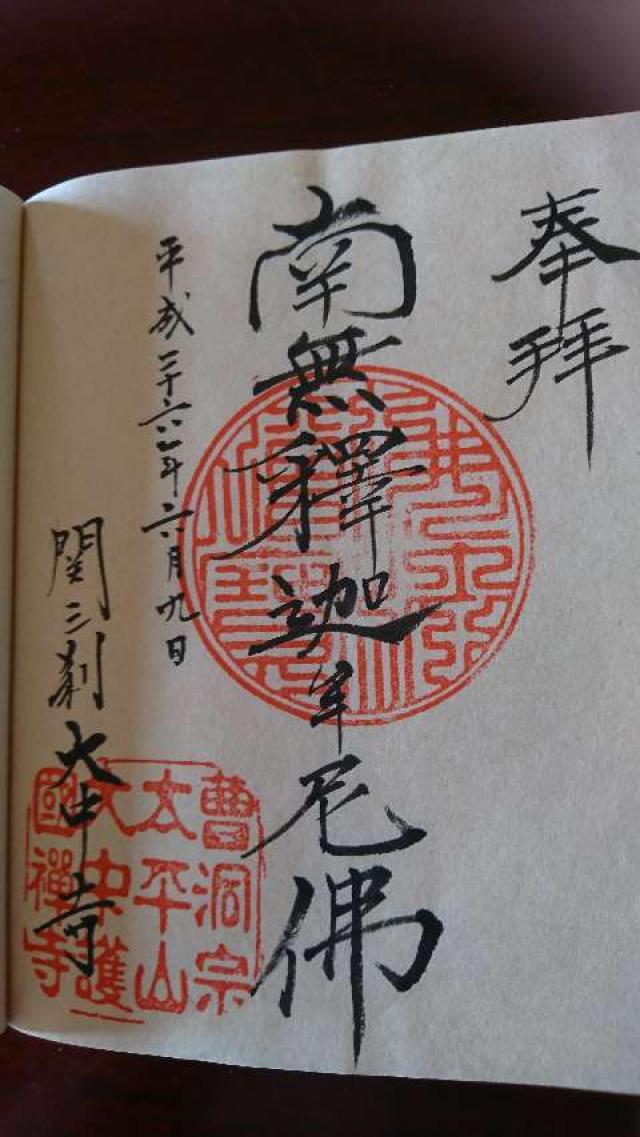 奉拝
南無釋迦牟尼佛
平成二十六年六月九日
関三刹 大中寺
曹洞宗
太平山
大中護
國禅寺